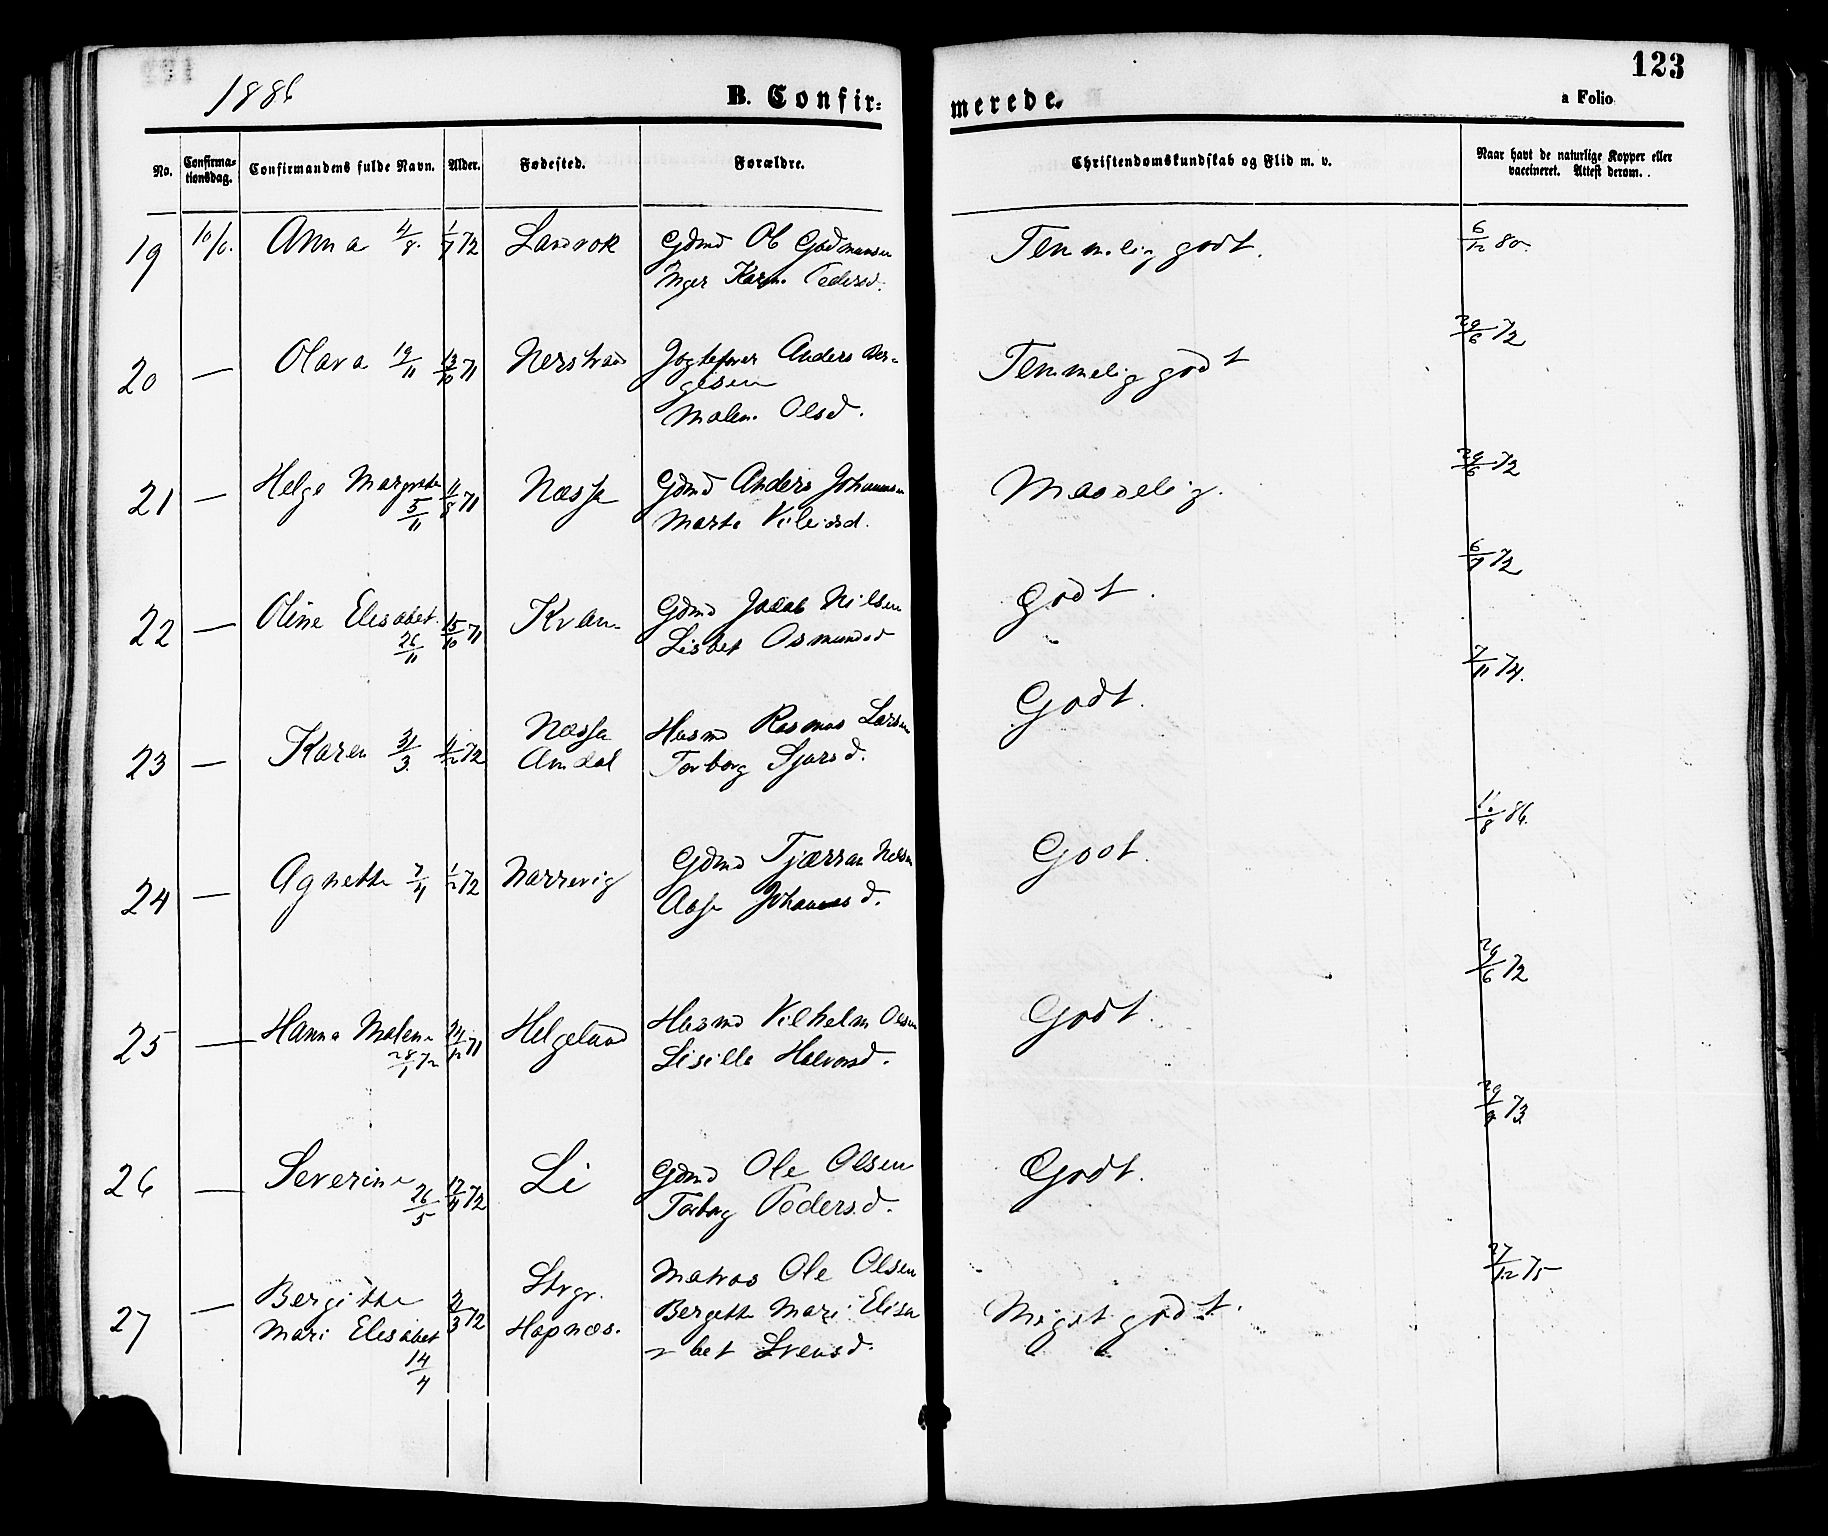 1886 B. Confir= merede. 123
a Folio
No. Confirma= tionsdag. Confirmandens fulde Navn. Alder. Fødested. Forældre. Christendomskundskab og Flid m. v. Naar havt de naturlige Kopper eller vaccineret. Attest derom.
19 10/10. Anna 4/8. 1/7 72 Landrok Gdmd Ol Gudmunsen Temmelig godt. 6/12 80.
Inger Karin. Pedersd.
20 — Olava 19/11 13/10 71 Nerstrand Anders Ber= Temmelig godt 29/6 72
gesen
Malen. Olsd.
21 — Helge Margrete 11/9 71 Næssa Gdmd Anders Johannsen Maadelig. 29/6 72
5/11 Marta Vileisd.
22 — Oline Elisabet. 15/10 71 Kvan. Gdmd Jacob Nilsen Godt. 6/7 72
26/11 Lisbet Osmundsd
23 — Karen 31/3. 72 Næssa Husmd Rasmus Larsen Godt. 7/11 74.
Amdal Torborg Sjursd.
24 — Agnette 7/4 1/2 72 Narrevig Gdmd Tjærran Nelsen Godt. 11/8 86.
Aase Johannesd.
25 — Hanna Malene 24/12 71 Helgeland Husmd Vilhelm Olsen Godt. 29/6 72
28/1 72 Lisille Halvorsd.
26 — Severine 17/4 72 Li Gdmd Ole Olsen Godt. 29/9 73
26/5 Torborg Pedersd.
27 — Bergitte 2/3 72 Strgr. Matros Ole Olsen Meget godt. 27/12 75
Mari Elisabet Hopnæs. Bergette Mari Elisa
14/4 = bet Svensd.